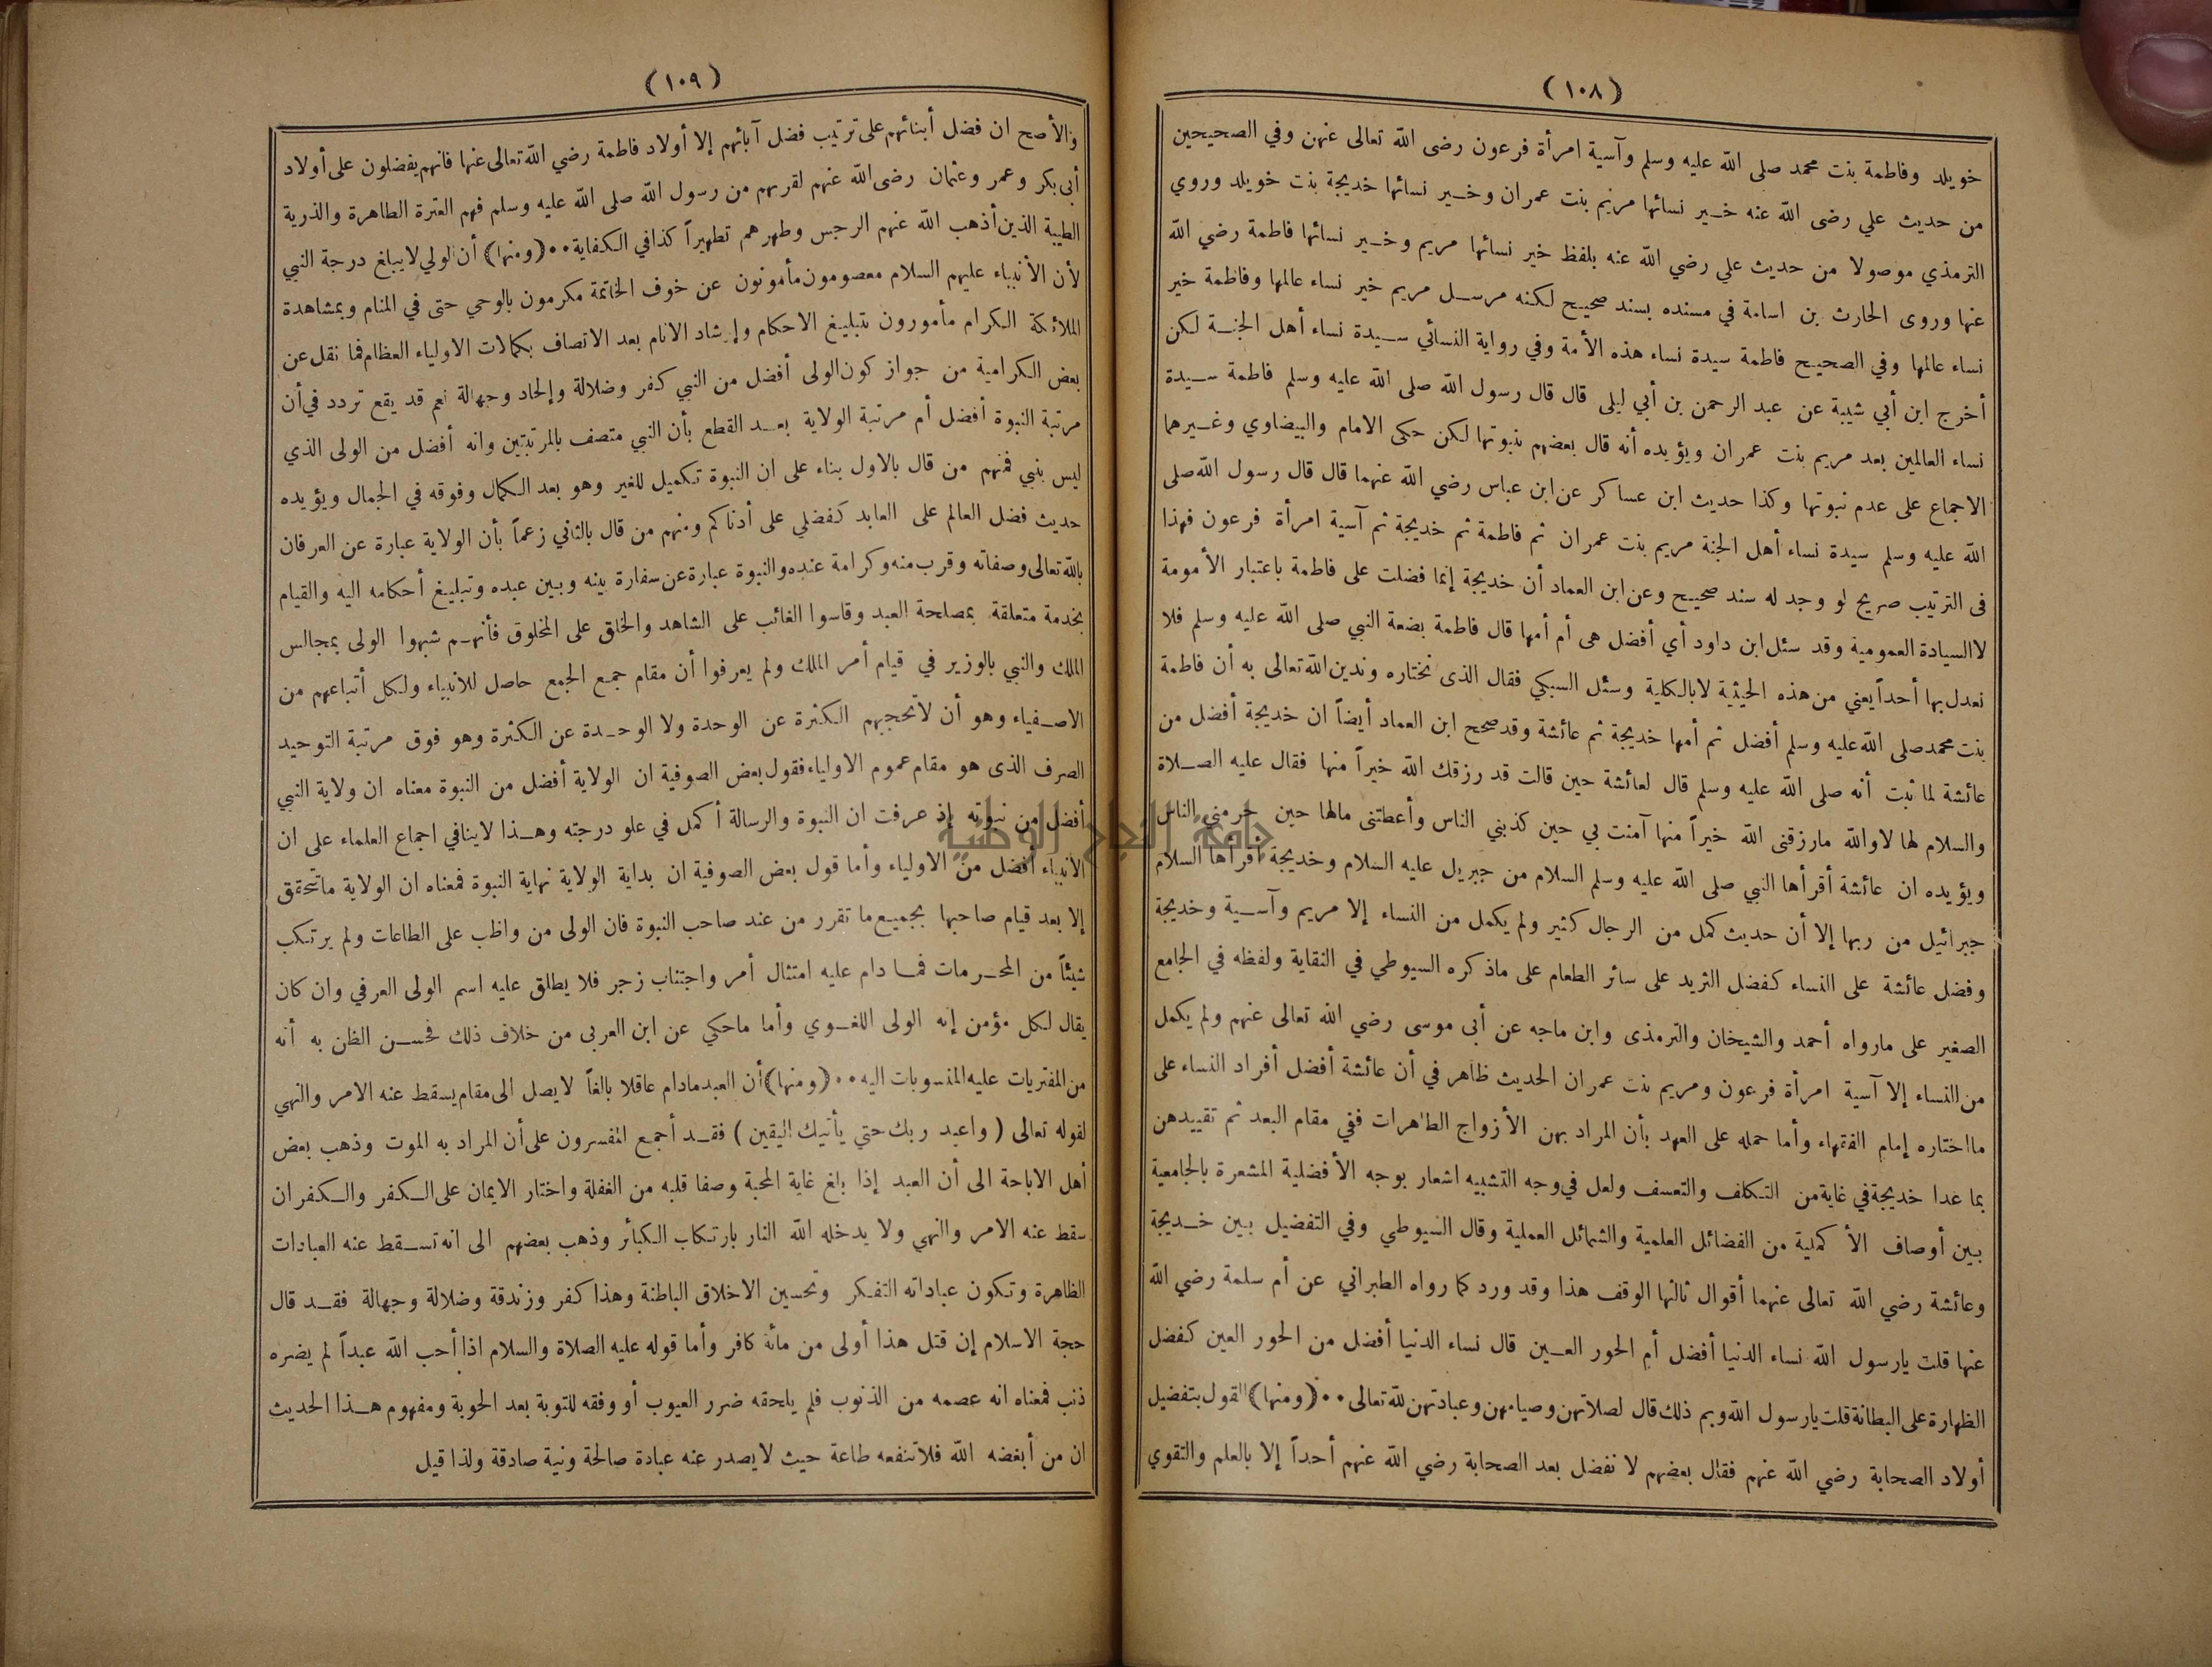 (١٠٨)
خويلد وفاطمة بنت محمد صلى الله عليه وسلم وآسية امرأة فرعون رضى الله تعالى عنهن وفي الصحيحين
من حديث علي رضى الله عنه خير نسائها مريم بنت عمران وخير نسائها خديجة بنت خويلد وروي
الترمذي موصولا من حديث علي رضي الله عنه بلفظ خير نسائها مريم وخير نسائها فاطمة رضي الله
عنها وروى الحارث بن اسامة في مسنده بسند صحيح لكنه مرسل مريم خير نساء عالمها وفاطمة خير
نساء عالمها وفي الصحيح فاطمة سيدة نساء هذه الأمة وفي رواية النسائي سيدة نساء أهل الجنة لكن
أخرج ابن أبي شيبة عن عبد الرحمن بن أبي ليلى قال قال رسول الله صلى الله عليه وسلم فاطمة سيدة
نساء العالمين بعد مريم بنت عمران ويؤيده أنه قال بعضهم بنبوتها لكن حكى الامام والبيضاوي وغيرهما
الاجماع على عدم نبوتها وكذا حديث ابن عساكر عن ابن عباس رضي الله عنهما قال قال رسول الله صلى
الله عليه وسلم سيدة نساء أهل الجنة مريم بنت عمران ثم فاطمة ثم خديجة ثم آسية امرأة فرعون فهذا
فى الترتيب صريح لو وجد له سند صحيح وعن ابن العماد أن خديجة إنما فضلت على فاطمة باعتبار الأمومة
لا السيادة العمومية وقد سئل ابن داود أي أفضل هى أم أمها قال فاطمة بضعة النبي صلى الله عليه وسلم فلا
نعدل بها أحداً يعني من هذه الحيثية لا بالكلية وسئل السبكي فقال الذى نختاره وندين الله تعالى به أن فاطمة
بنت محمد صلى الله عليه وسلم أفضل ثم أمها خديجة ثم عائشة وقد صحح ابن العماد أيضاً ان خديجة أفضل من
عائشة لما ثبت أنه صلى الله عليه وسلم قال لعائشة حين قالت قد رزقك الله خيراً منها فقال عليه الصلاة
والسلام لها لا والله مارزقنى الله خيراً منها آمنت بي حين كذبني الناس وأعطتنى مالها حين حرمني الناس
ويؤيده ان عائشة أقرأها النبي صلى الله عليه وسلم السلام من جبريل عليه السلام وخديجة أقرأها السلام
جبرائيل من ربها إلا أن حديث كمل من الرجال كثير ولم يكمل من النساء إلا مريم وآسية وخديجة
وفضل عائشة على النساء كفضل الثريد على سائر الطعام على ماذكره السيوطي في النقاية ولفظه في الجامع
الصغير على مارواه أحمد والشيخان والترمذى وابن ماجه عن أبى موسى رضي الله تعالى عنهم ولم يكمل
من النساء إلا آسية امرأة فرعون ومريم بنت عمران الحديث ظاهر في أن عائشة أفضل أفراد النساء على
مااختاره إمام الفقهاء وأما حمله على العهد بأن المراد بهن الأزواج الطاهرات ففي مقام البعد ثم تقييدهن
بما عدا خديجة في غاية من التكلف والتعسف ولعل في وجه التشبيه اشعار بوجه الأفضلية المشعرة بالجامعية
بين أوصاف الأكملية من الفضائل العلمية والشمائل العملية وقال السيوطي وفي التفضيل بين خديجة
وعائشة رضي الله تعالى عنهما أقوال ثالثها الوقف هذا وقد ورد كما رواه الطبراني عن أم سلمة رضي الله
عنها قلت يارسول الله نساء الدنيا أفضل أم الحور العين قال نساء الدنيا أفضل من الحور العين كفضل
الظهارة على البطانة قلت يارسول الله وبم ذلك قال لصلاتهن وصيامهن وعبادتهن لله تعالى ٠٠ (ومنها) القول بتفضيل
أولاد الصحابة رضي الله عنهم فقال بعضهم لا نفضل بعد الصحابة رضي الله عنهم أحداً إلا بالعلم والتقوي
(١٠٩)
والأصح ان فضل أبنائهم على ترتيب فضل آبائهم إلا أولاد فاطمة رضي الله تعالى عنها فانهم يفضلون على أولاد
أبى بكر وعمر وعثمان رضى الله عنهم لقربهم من رسول الله صلى الله عليه وسلم فهم العترة الطاهرة والذرية
الطيبة الذين أذهب الله عنهم الرجس وطهرهم تطهيراً كذا في الكفاية ٠٠ (ومنها) أن الولي لا يبلغ درجة النبي
لأن الأنبياء عليهم السلام معصومون مأمونون عن خوف الخاتمة مكرمون بالوحي حتى في المنام وبمشاهدة
الملائكة الكرام مأمورون بتبليغ الاحكام وإرشاد الانام بعد الاتصاف بكمالات الاولياء العظام فما نقل عن
بعض الكرامية من جواز كون الولى أفضل من النبي كفر وضلالة وإلحاد وجهالة نعم قد يقع تردد في أن
مرتبة النبوة أفضل أم مرتبة الولاية بعد القطع بأن النبي متصف بالمرتبتين وانه أفضل من الولى الذي
ليس بنبي فمنهم من قال بالاول بناء على ان النبوة تكميل للغير وهو بعد الكمال وفوقه في الجمال ويؤيده
حديث فضل العالم على العابد كفضلي على أدناكم ومنهم من قال بالثاني زعماً بأن الولاية عبارة عن العرفان
بالله تعالى وصفاته وقرب منه وكرامة عنده والنبوة عبارة عن سفارة بينه وبين عبده وتبليغ أحكامه اليه والقيام
بخدمة متعلقة بمصلحة العبد وقاسوا الغائب على الشاهد والخلق على المخلوق فأنهم شبهوا الولى بمجالس
الملك والنبي بالوزير في قيام أمر الملك ولم يعرفوا أن مقام جمع الجمع حاصل للأنبياء ولكل أتباعهم من
الاصفياء وهو أن لاتحجبهم الكثرة عن الوحدة ولا الوحدة عن الكثرة وهو فوق مرتبة التوحيد
الصرف الذى هو مقام عموم الاولياء فقول بعض الصوفية ان الولاية أفضل من النبوة معناه ان ولاية النبي
أفضل من نبوته إذ عرفت ان النبوة والرسالة أكمل في علو درجته وهذا لاينافي اجماع العلماء على ان
الأنبياء أفضل من الاولياء وأما قول بعض الصوفية ان بداية الولاية نهاية النبوة فمعناه ان الولاية ماتتحقق
إلا بعد قيام صاحبها بجميع ما تقرر من عند صاحب النبوة فان الولى من واظب على الطاعات ولم يرتكب
شيئاً من المحرمات فما دام عليه امتثال أمر واجتناب زجر فلا يطلق عليه اسم الولى العرفي وان كان
يقال لكل مؤمن إنه الولى اللغوي وأما ماحكي عن ابن العربى من خلاف ذلك فحسن الظن به أنه
من المفتريات عليه المنسوبات اليه ٠٠ (ومنها) أن العبد مادام عاقلا بالغاً لا يصل الى مقام يسقط عنه الامر والنهي
لقوله تعالى ( واعبد ربك حتي يأتيك اليقين ) فقد أجمع المفسرون على أن المراد به الموت وذهب بعض
أهل الاباحة الى أن العبد إذا بلغ غاية المحبة وصفا قلبه من الغفلة واختار الايمان على الكفر والكفران
سقط عنه الامر والنهي ولا يدخله الله النار بارتكاب الكبائر وذهب بعضهم الى انه تسقط عنه العبادات
الظاهرة وتكون عباداته التفكر وتحسين الاخلاق الباطنة وهذا كفر وزندقة وضلالة وجهالة فقد قال
حجة الاسلام إن قتل هذا أولى من مائة كافر وأما قوله عليه الصلاة والسلام اذا أحب الله عبداً لم يضره
ذنب فمعناه انه عصمه من الذنوب فلم يلحقه ضرر العيوب أو وفقه للتوبة بعد الحوبة ومفهوم هذا الحديث
ان من أبغضه الله فلا تنفعه طاعة حيث لا يصدر عنه عبادة صالحة ونية صادقة ولذا قيل
جامعة النجاح الوطنية